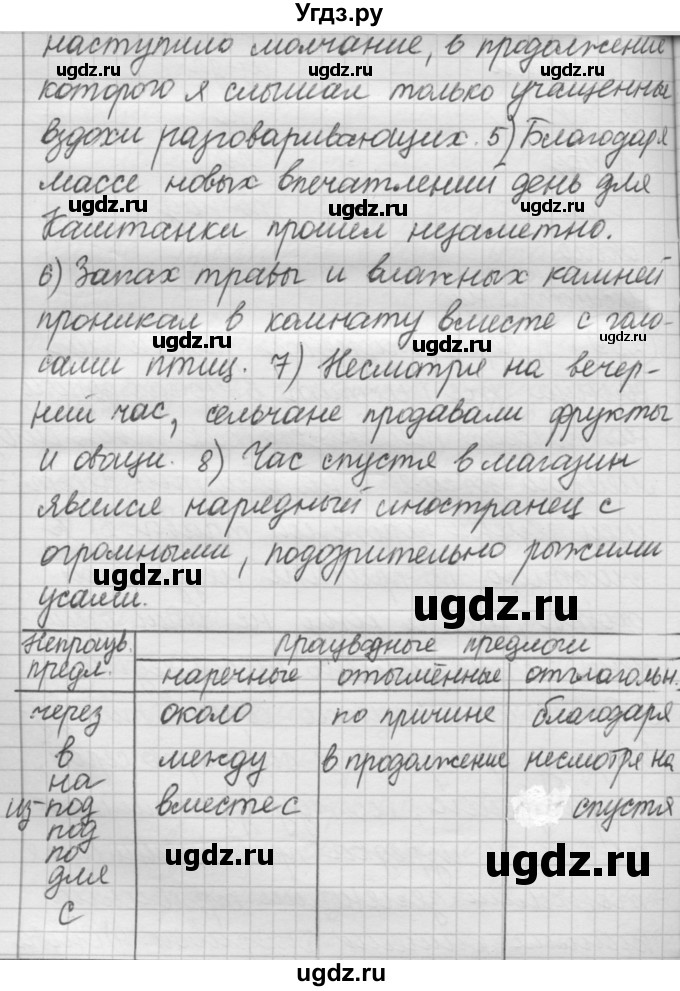 Угдз.ру
наступило молчание, в продолжение
которого я слышал только учащенны
вздохи разговаривающих. 5) Благодаря
массе новых впечатлений день для
Каштанки прошел незаметно.
6) Запах травы и влажных камней
проникал в комнату вместе с голо-
сами птиц. 7) Несмотря на вечер-
ний час, сельчане продавали фрукты
и овощи. 8) Час спустя в магазин
явился нарядный иностранец с
огромными, подозрительно рыжими
усами.
Непроизв. предл. Производные предлоги
наречные отымённые отглагольн.
через около по причине благодаря
в между в продолжение несмотря на
на
из-под вместе с спустя
под
по
для
с
ugdz.ru